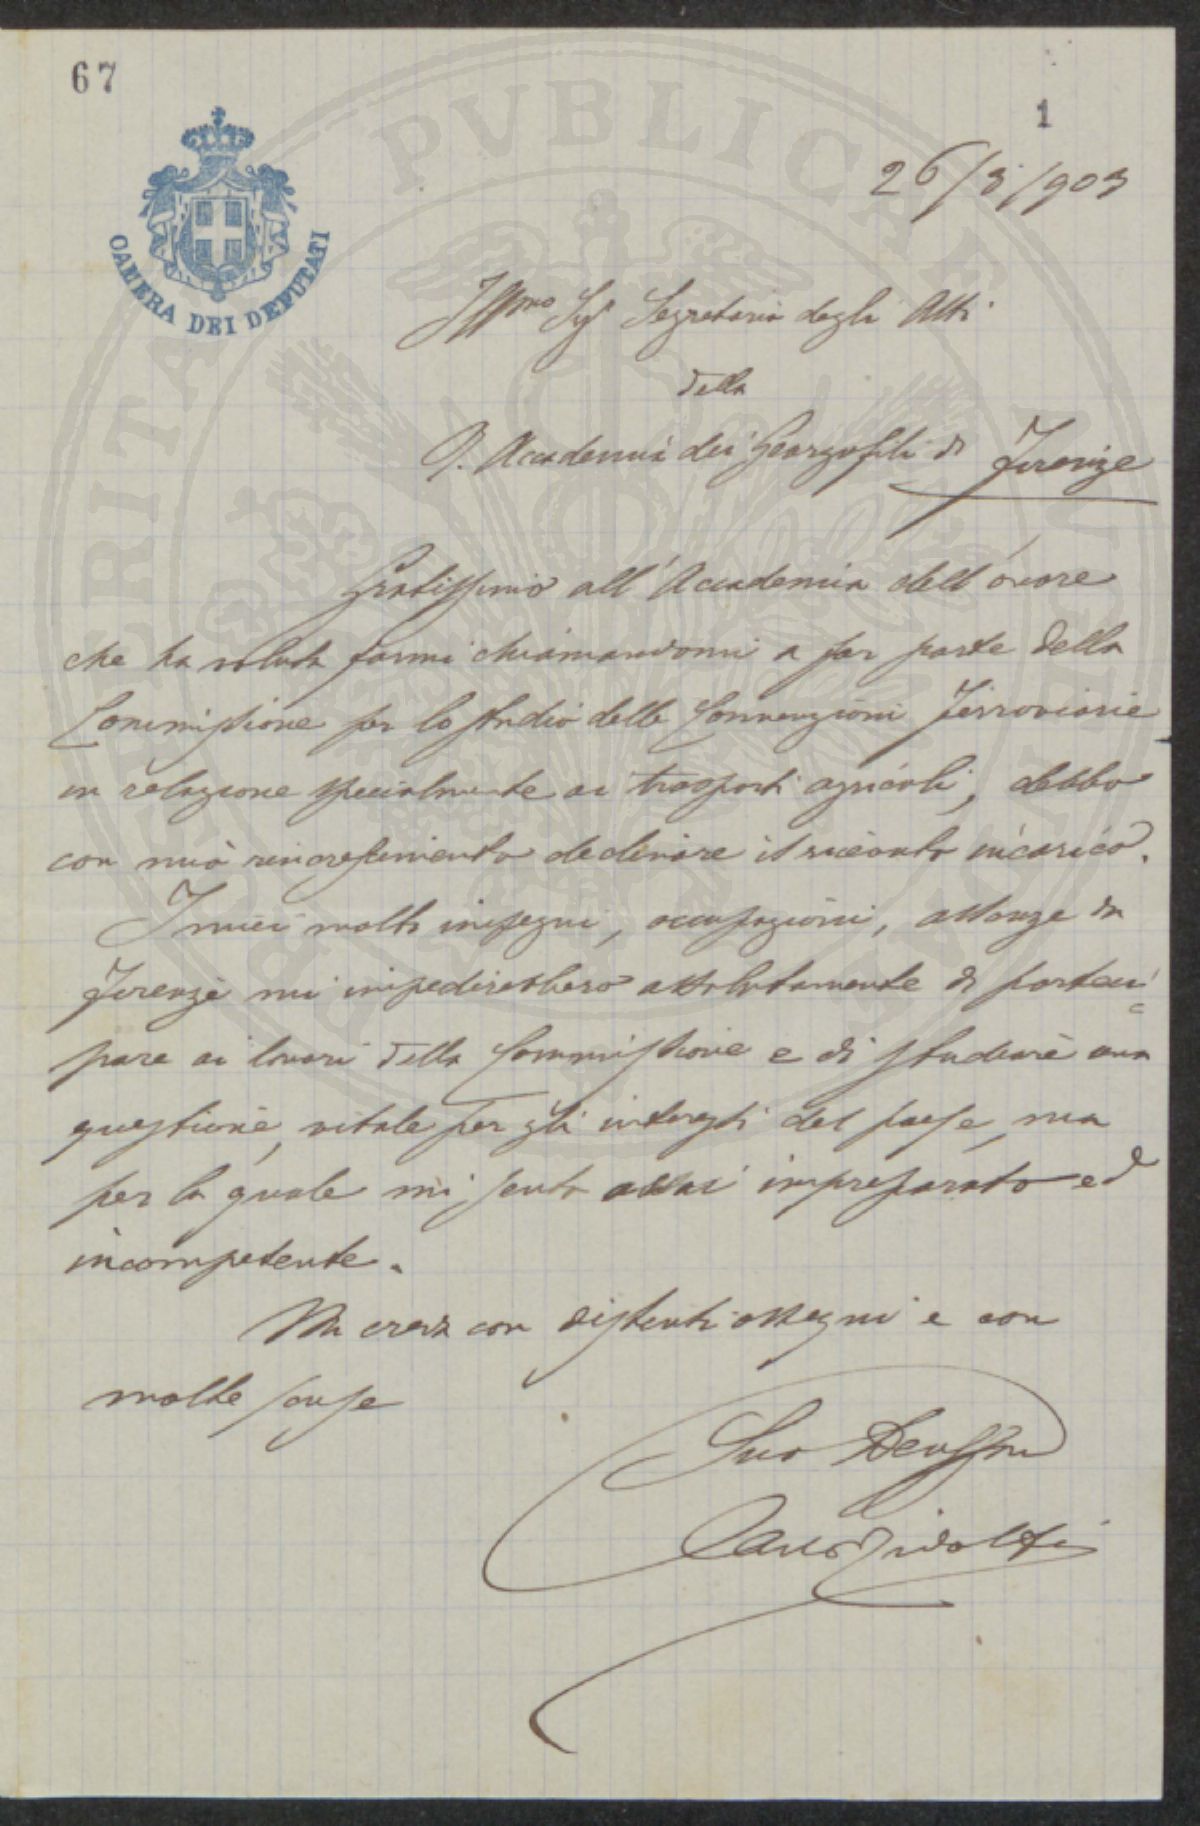 67
1
CAMERA DEI DEPUTATI
26/3/903
Illmo Sigr Segretario degli Atti
della
R. Accademia dei Georgofili di Firenze
Gratissimo all'Accademia dell'onore
che ha voluto farmi chiamandomi a far parte della
Commissione per lo studio delle Convenzioni Ferroviarie
in relazione specialmente ai trasporti agricoli, debbo
con mio rincrescimento declinare il ricevuto incarico.
I miei molti impegni, occupazioni, assenze da
Firenze mi impedirebbero assolutamente di parteci=
pare ai lavori della Commissione e di studiare una
questione, vitale per gli interessi del paese, ma
per la quale mi sento assai impreparato ed
incompetente.
Mi creda con distinti ossequi e con
molte scuse
Suo Devssmo
Carlo Ridolfi